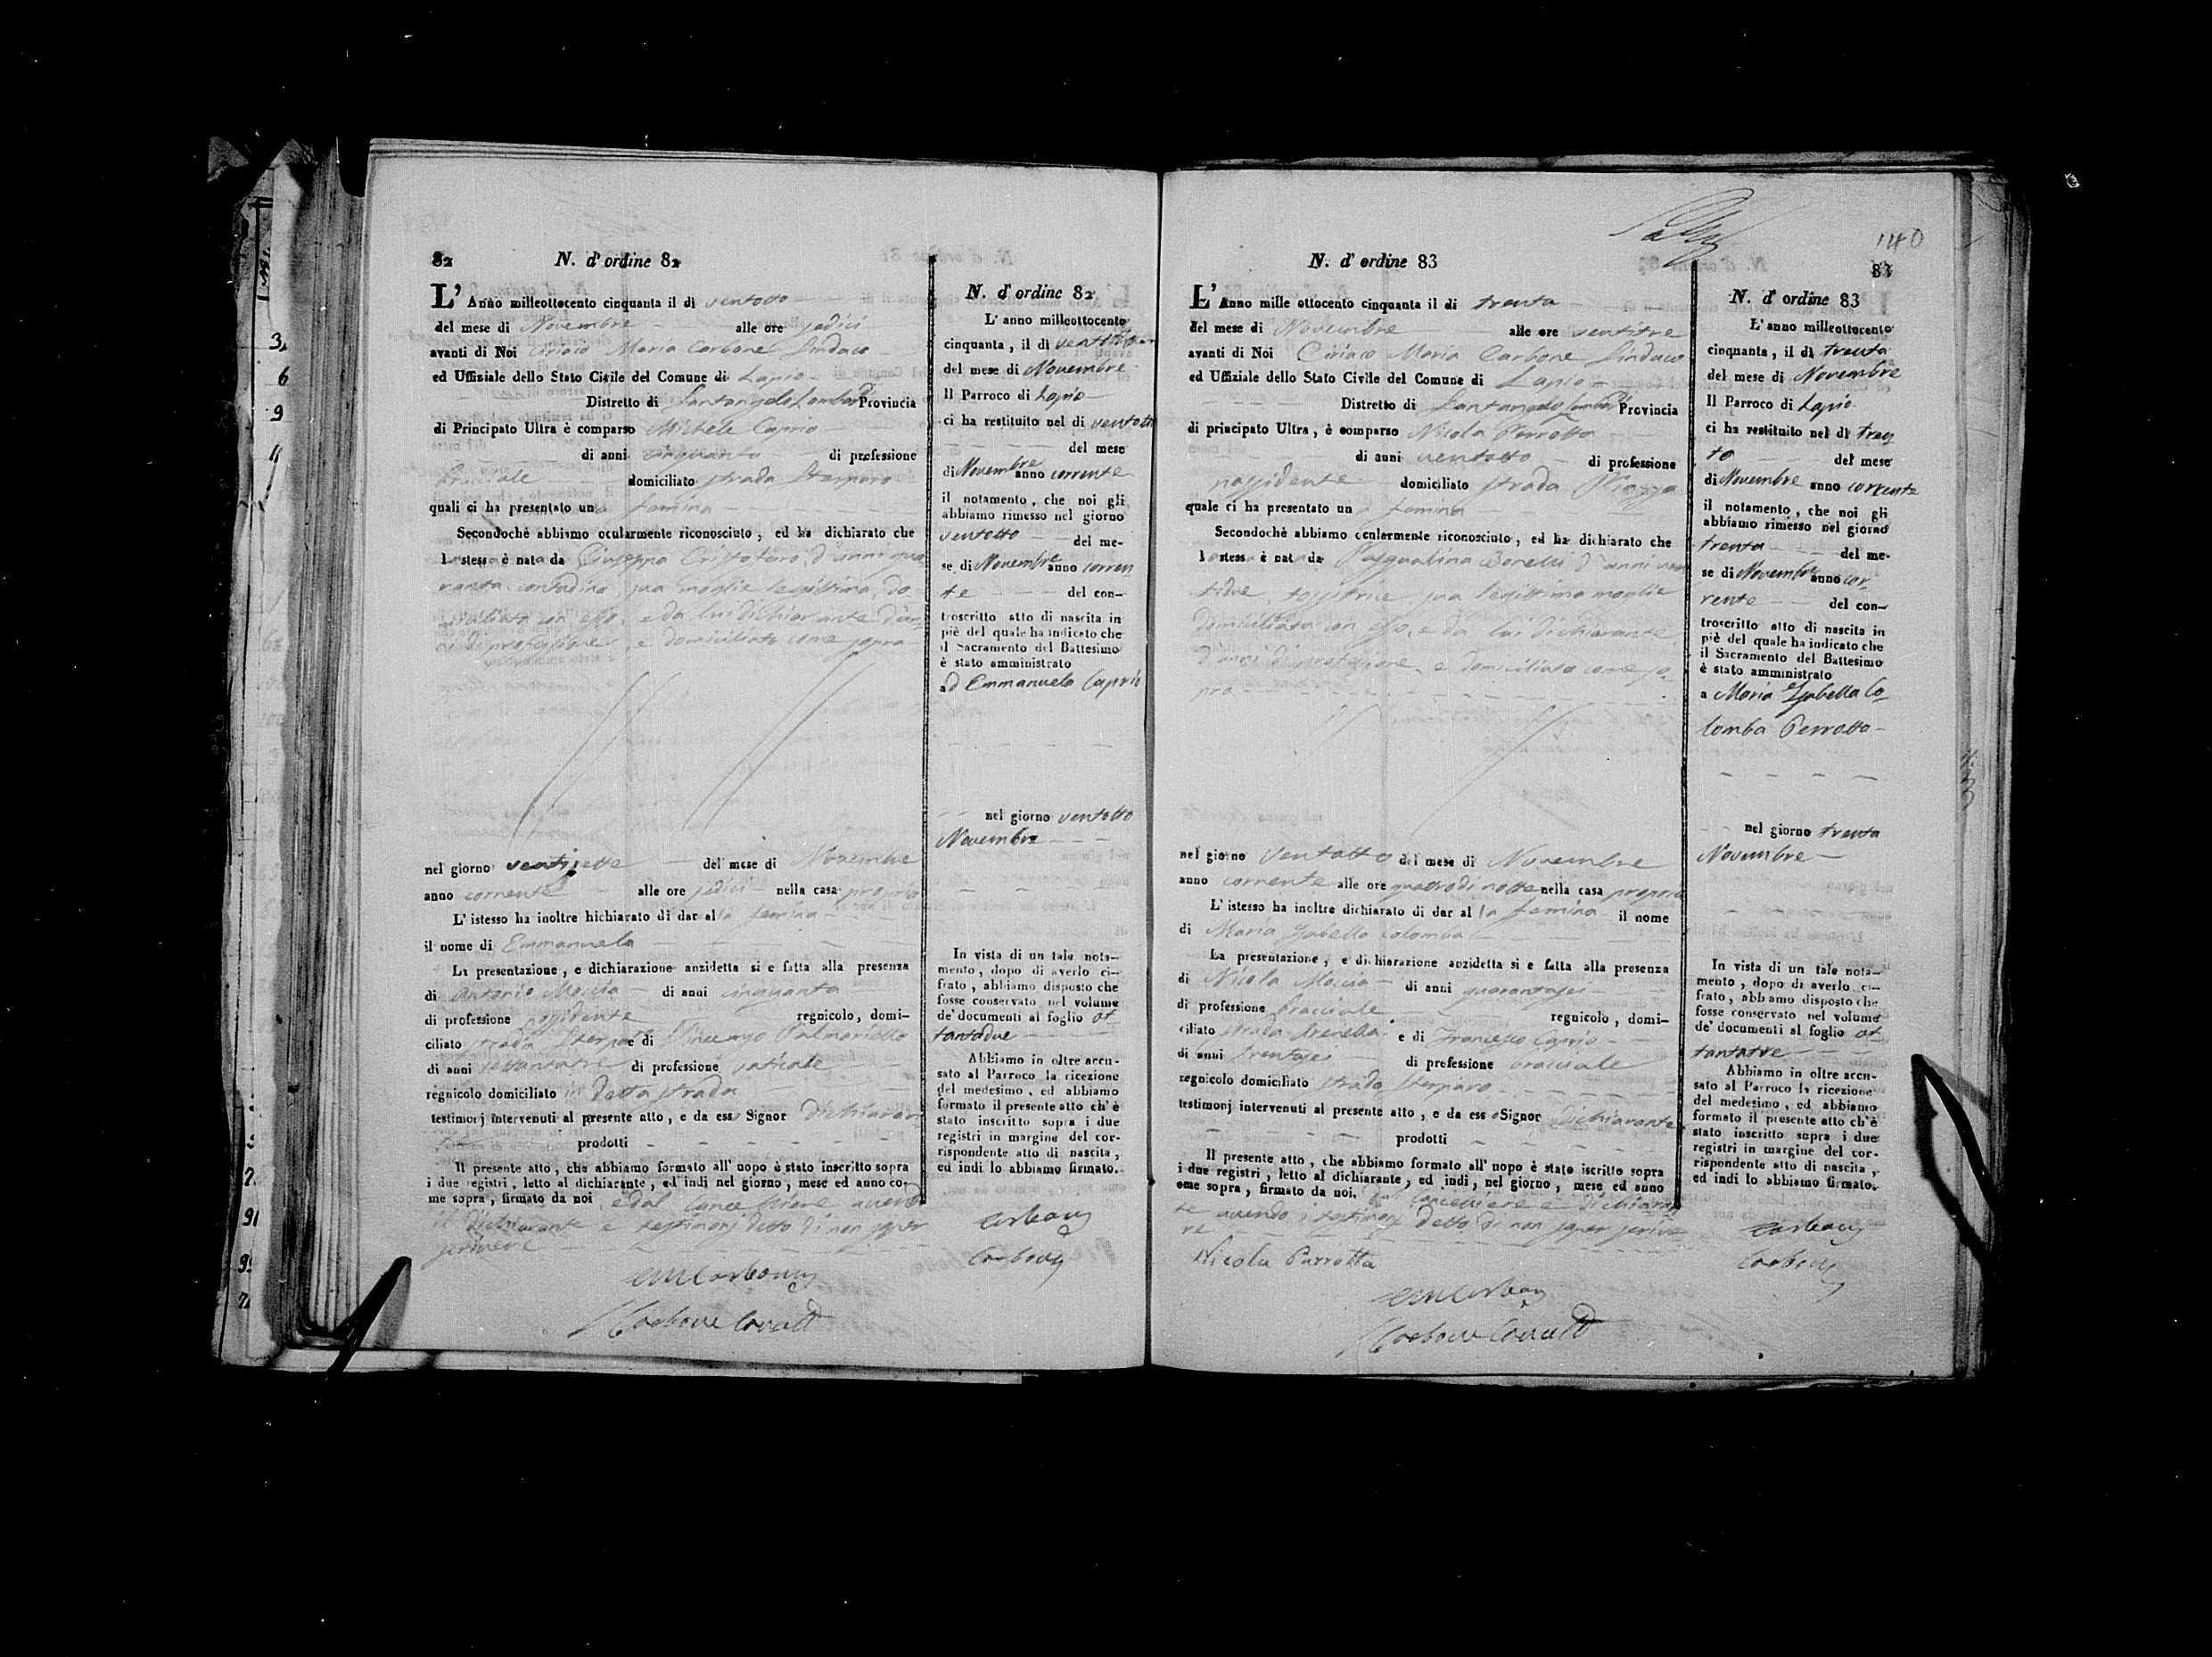 82 N. d'ordine 82
L' Anno milleottocento cinquanta il di ventotto
del mese di Novembre alle ore sedici
avanti di Noi Ciriaco Maria Carbone Sindaco
ed Uffiziale dello Stato Civile del Comune di Lapio
Distretto di Santangelo Lombardi Provincia
di Principato Ultra è comparso Michele Caprio
di anni cinquanta di professione
bracciale domiciliato strada Sterparo
quali ci ha presentato una femina
Secondochè abbiamo ocularmente riconosciuto, ed ha dichiarato che
l stess è nata da Giuseppa Cristofaro d'anni qua
ranta contadina, sua moglie legittima, do
miciliata con esso, e da lui dichiarante d'an
ni di professione, e domiciliato come sopra
nel giorno ventisette del mese di Novembre
anno corrente alle ore sedici nella casa propria
L' istesso ha inoltre hichiarato di dar al la femina
il nome di Emmanuela
La presentazione, e dichiarazione anzidetta si e fatta alla presenza
di Antonio Moccia di anni cinquanta
di professione possidente regnicolo, domi-
ciliato strada Sterparo e di Vincenzo Palmariello
di anni di professione vaticale
regnicolo domiciliato in detta strada
testimorj intervenuti al presente atto, e da esso Signor dichiaran
prodotti
Il presente atto, che abbiamo formato all' uopo è stato inscritto sopra
i due registri, letto al dichiarante, ed indi nel giorno, mese ed anno co-
me sopra, firmato da noi e dal Cancelliere avendo
il dichiarante e testimonj detto di non saper
scrivere
CMCarbone
Carbone
N. d' ordine 82
L' anno milleottocento
cinquanta, il dì ventotto
del mese di Novembre
Il Parroco di Lapio
ci ha restituito nel di ventotto
del mese
di Novembre anno corrente
il notamento, che noi gli
abbiamo rimesso nel giorno
ventotto del me-
se di Novembre anno corren
te del con-
troscritto atto di nascita in
piè del quale ha indicato che
il Sacramento del Battesimo
è stato amministrato
ad Emmanuela Caprio
nel giorno ventotto
Novembre
In vista di un tale nota-
mento, dopo di averlo ci-
frato, abbiamo disposto che
fosse conservato nel volume
de' documenti al foglio ot
tantadue
Abbiamo in oltre accu-
sato al Parroco la ricezione
del medesimo, ed abbiamo
formato il presente atto ch'è
stato inscritto sopra i due
registri in margine del cor-
rispondente atto di nascita,
ed indi lo abbiamo firmato.
Carbone
Carbone
140
N. d' ordine 83 83
L' Anno mille ottocento cinquanta il di trenta
del mese di Novembre alle ore ventitre
avanti di Noi Ciriaco Maria Carbone Sindaco
ed Uffiziale dello Stato Civile del Comune di Lapio
Distretto di Santangelo Lombardi Provincia
di principato Ultra, è comparso Nicola Perrotta
di anni ventotto di professione
possidente domiciliato strada Piazza
quale ci ha presentato un a femina
Secondochè abbiamo oculermente riconosciuto, ed ha dichiarato che
l stess è nat da Pasqualina Bonelli d'anni ven
titre tessitrice sua legittima moglie
domiciliata con esso, e da lui dichiarante
d'anni di professione, e domiciliato come so-
pra
nel giorno Ventotto del mese di Novembre
anno corrente alle ore quattro di notte nella casa propria
L' istesso ha inoltre dichiarato di dar al la femina il nome
di Maria Isabella Colomba
La presentazione, e dichiarazione anzidetta si e fatta alla presenza
di Nicola Moccia di anni quarantasei
di professione bracciale regnicolo, domi-
ciliato strada e di Francesco Caprio
di anni trentasei di prefessione bracciale
regnicolo domiciliato strada Sterparo
testimonj intervenuti al presente atto, e da ess o Signor dichiarante
prodotti
Il presente atto, che abbiamo formato all' uopo è stato iscritto sopra
i due registri, letto al dichiarante, ed indi, nel giorno, mese ed anno
ome sopra, firmato da noi. dal Cancelliere e dichiaran
te avendo i testimonj detto di non saper scrive
re
Nicola Parrotta
CMCarbone
Carbone
N. d' ordine 83
L' anno milleottocento
cinquanta, il dì trenta
del mese di Novembre
Il Parroco di Lapio
ci ha restituito nel dì tren
ta del mese
di Novembre anno corrente
il notamento, che noi gli
abbiamo rimesso nel giorno
trenta del me-
se di Novembre anno cor-
rente del con-
troscritto atto di nascita in
piè del quale ha indicato che
il Sacramento del Battesimo
è stato amministrato
a Maria Isabella Co-
lomba Perrotta
nel giorno trenta
Novembre
In vista di un tale nota-
mento, dopo di averlo ci-
frato, abbiamo disposto che
fosse conservato nel volume
de' documenti al foglio ot
tantatre
Abbiamo in oltre accu-
sato al Parroco la ricezione
del medesimo, ed abbiamo
formato il presente atto ch'è
stato inscritto sopra i due
registri in margine del cor-
rispondente atto di nascita,
ed indi lo abbiamo firmato.
Carbone
Carbone